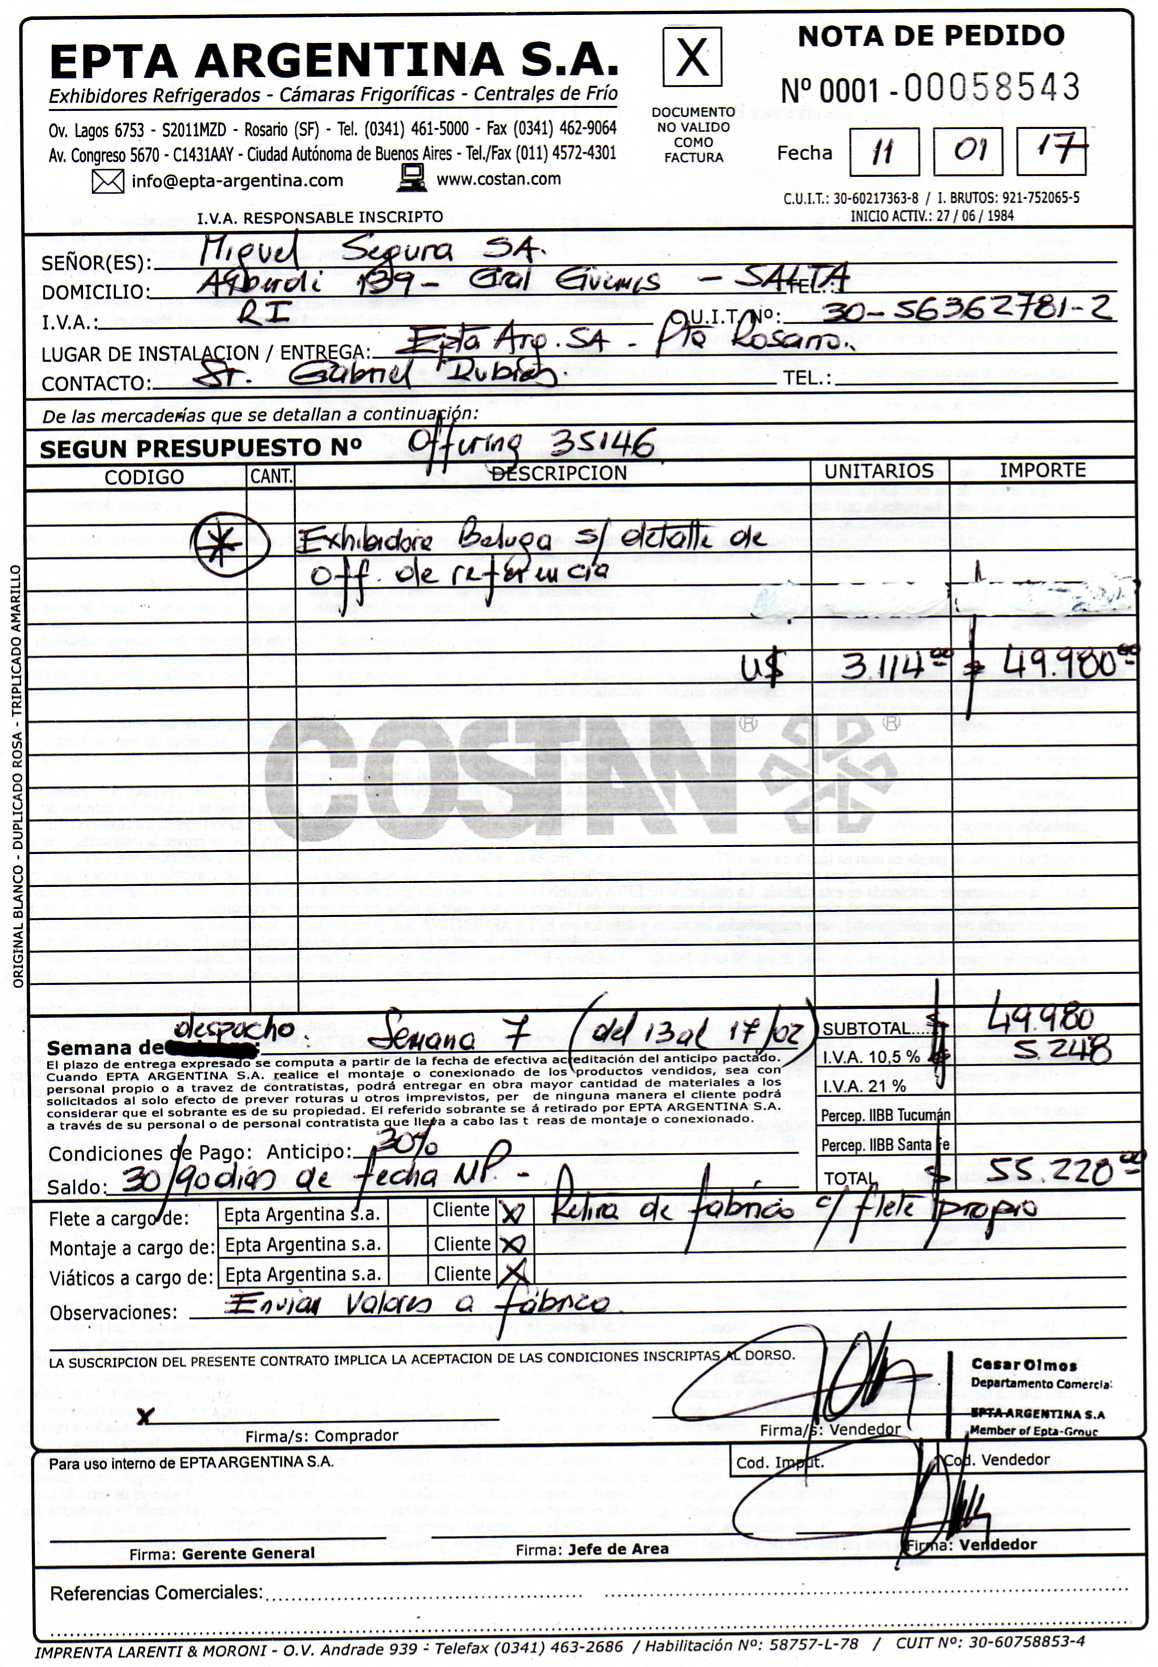 EPTA ARGENTINA S.A.
Exhibidores Refrigerados - Cámaras Frigoríficas - Centrales de Frío
Ov. Lagos 6753 - S2011MZD - Rosario (SF) - Tel. (0341) 461-5000 - Fax (0341) 462-9064
Av. Congreso 5670 - C1431AAY - Ciudad Autónoma de Buenos Aires - Tel./Fax (011) 4572-4301
info@epta-argentina.com www.costan.com
I.V.A. RESPONSABLE INSCRIPTO
X
DOCUMENTO
NO VALIDO
COMO
FACTURA
NOTA DE PEDIDO
Nº 0001 - 00058543
Fecha 11 01 17
C.U.I.T.: 30-60217363-8 / I. BRUTOS: 921-752065-5
INICIO ACTIV.: 27 / 06 / 1984
SEÑOR(ES): Miguel Segura SA.
DOMICILIO: 139 - Gral Güemes - SALTA TEL.:
I.V.A.: RI C.U.I.T. Nº: 30-56362781-2
LUGAR DE INSTALACION / ENTREGA: Epta Arg. SA - Pta Rosario.
CONTACTO: Sr. Gabriel Rubias. TEL.:
De las mercaderías que se detallan a continuación:
SEGUN PRESUPUESTO Nº Offering 35146
CODIGO CANT. DESCRIPCION UNITARIOS IMPORTE
Exhibidora Beluga s/ detalle de
Off. de referencia
U$ 3.114⁰⁰ $ 49.980⁰⁰
COSTAN ® ®
ORIGINAL BLANCO - DUPLICADO ROSA - TRIPLICADO AMARILLO
Semana de despacho: Semana 7 (del 13 al 17/02)
El plazo de entrega expresado se computa a partir de la fecha de efectiva acreditación del anticipo pactado.
Cuando EPTA ARGENTINA S.A. realice el montaje o conexionado de los productos vendidos, sea con
personal propio o a travez de contratistas, podrá entregar en obra mayor cantidad de materiales a los
solicitados al solo efecto de prever roturas u otros imprevistos, per de ninguna manera el cliente podrá
considerar que el sobrante es de su propiedad. El referido sobrante se á retirado por EPTA ARGENTINA S.A.
a través de su personal o de personal contratista que lleva a cabo las t reas de montaje o conexionado.
Condiciones de Pago: Anticipo: 30%
Saldo: 30/90 dias de fecha NP. -
SUBTOTAL.... $ 49.980
I.V.A. 10,5 % $ 5.248
I.V.A. 21 %
Percep. IIBB Tucumán
Percep. IIBB Santa Fe
TOTAL $ 55.228⁰⁰
Flete a cargo de: Epta Argentina s.a. Cliente X Retira de fábrica c/ flete propio
Montaje a cargo de: Epta Argentina s.a. Cliente X
Viáticos a cargo de: Epta Argentina s.a. Cliente X
Observaciones: Enviar valores a fábrica.
LA SUSCRIPCION DEL PRESENTE CONTRATO IMPLICA LA ACEPTACION DE LAS CONDICIONES INSCRIPTAS AL DORSO.
x
Firma/s: Comprador
Firma/s: Vendedor
Cesar Olmos
Departamento Comercial
EPTA ARGENTINA S.A
Member of Epta-Group
Para uso interno de EPTA ARGENTINA S.A.
Cod. Imput. Cod. Vendedor
Firma: Gerente General Firma: Jefe de Area Firma: Vendedor
Referencias Comerciales:
IMPRENTA LARENTI & MORONI - O.V. Andrade 939 - Telefax (0341) 463-2686 / Habilitación Nº: 58757-L-78 / CUIT Nº: 30-60758853-4